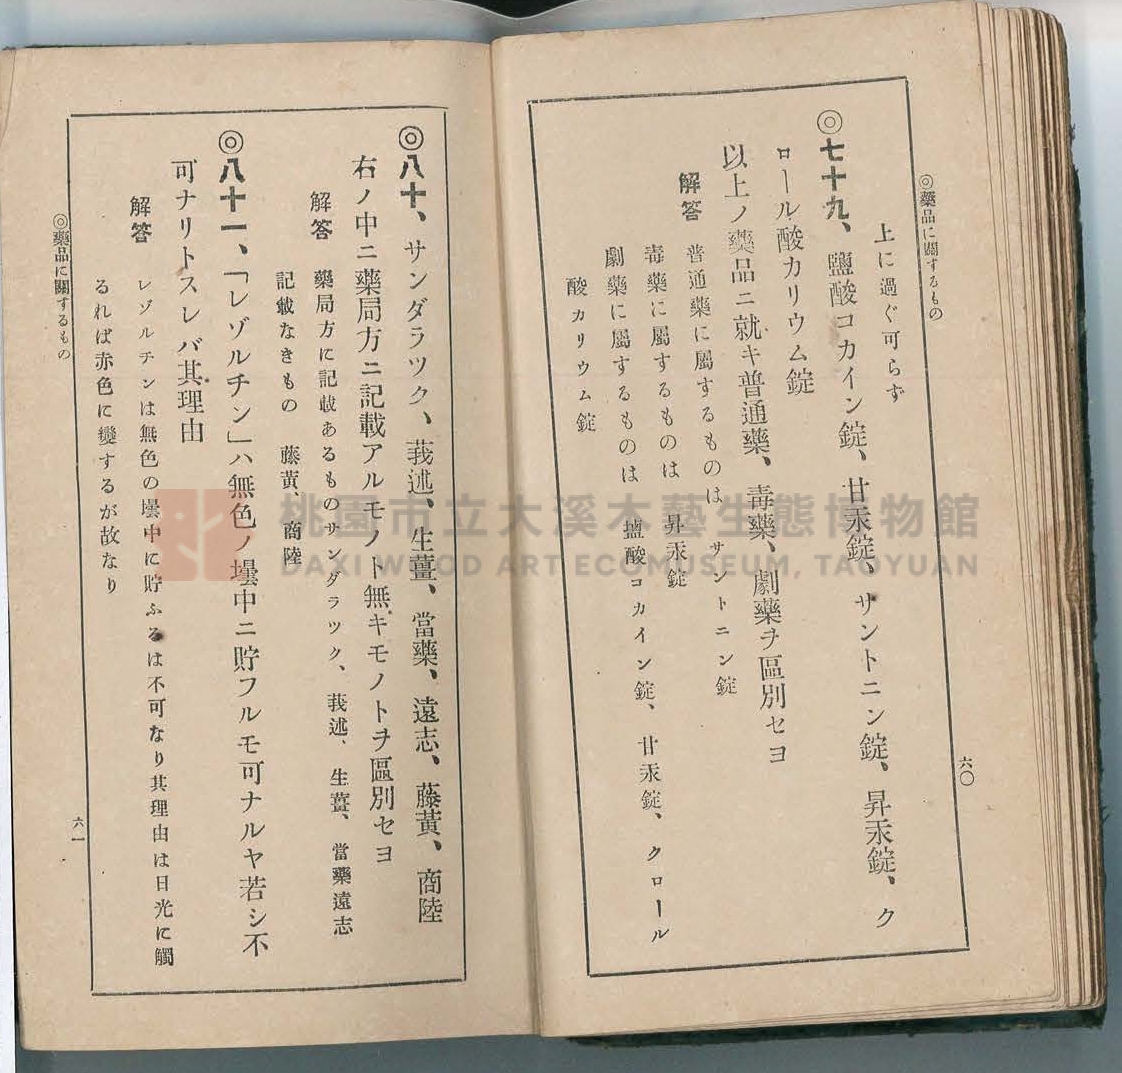 ◎藥品に關するもの
六〇
上に過ぐ可らず
◎七十九、鹽酸コカイン錠、甘汞錠、サントニン錠、昇汞錠、ク
ロール酸カリウム錠
以上ノ藥品ニ就キ普通藥、毒藥、劇藥ヲ區別セヨ
解答 普通藥に屬するものは サントニン錠
毒藥に屬するものは 昇汞錠
劇藥に屬するものは 鹽酸コカイン錠、甘汞錠、クロール
酸カリウム錠
◎八十、サンダラツク、莪述、生薑、當藥、遠志、藤黃、商陸
右ノ中ニ藥局方ニ記載アルモノト無キモノトヲ區別セヨ
解答 藥局方に記載あるものサンダラツク、莪述、生薑、當藥遠志
記載なきもの 藤黃、商陸
◎八十一、「レゾルチン」ハ無色ノ壜中ニ貯フルモ可ナルヤ若シ不
可ナリトスレバ其理由
解答 レゾルチンは無色の壜中に貯ふるは不可なり其理由は日光に觸
るれば赤色に變するが故なり
◎藥品に關するもの
六一
桃園市立大溪木藝生態博物館
DAXI WOOD ART ECOMUSEUM, TAOYUAN